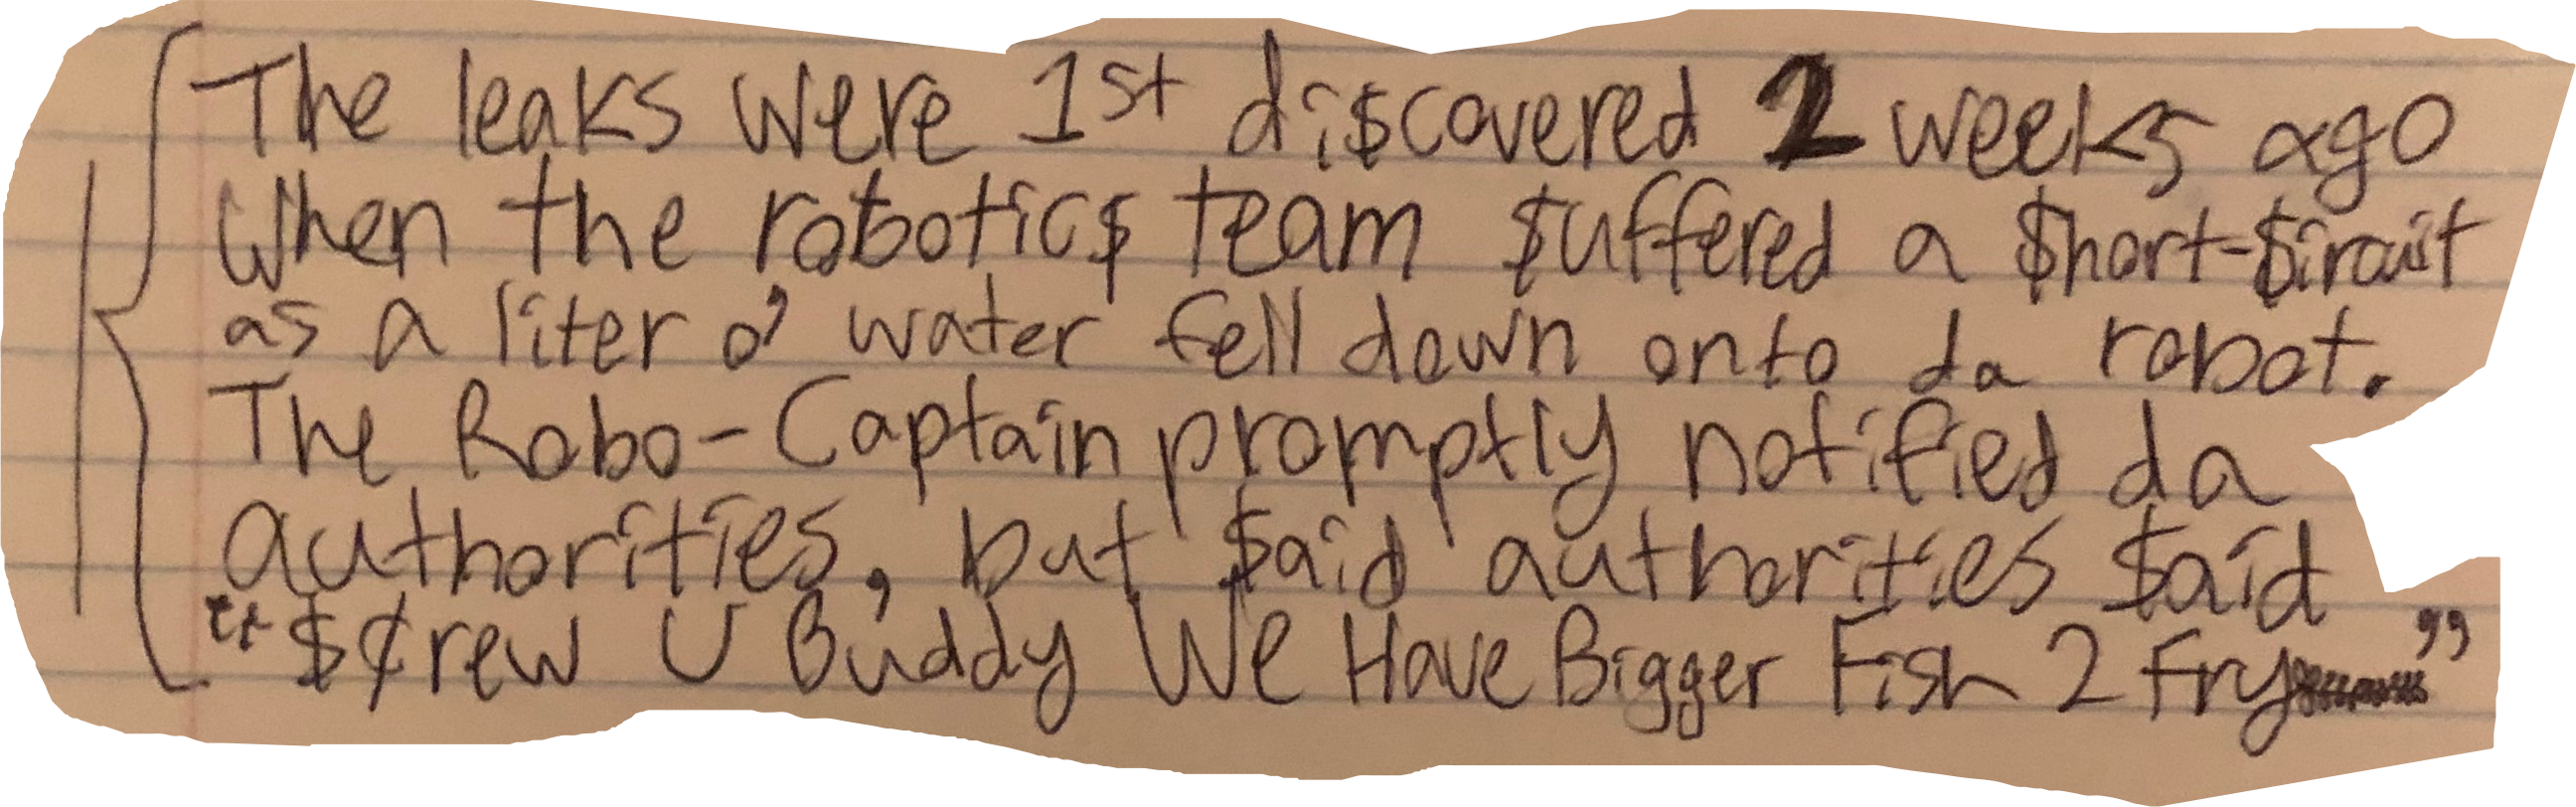 The leaks were 1st di$covered 2 weeks ago
when the robotic$ team $uffered a $hort-$ircuit
as a liter o' water fell down onto da robot.
The Robo-Captain promptly notified da
authorities, but $aid authorities $aid
"$¢rew U Buddy We Have Bigger Fish 2 Fry"